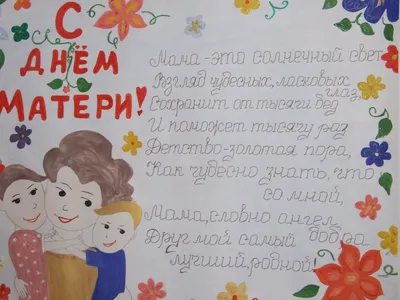 С
ДНЁМ
МАТЕРИ!
Мама-это солнечный свет
Взгляд чудесных, ласковых глаз
Сохранит от тысячи бед
И поможет тысячу раз
Детство-золотая пора,
Как чудесно знать, что
со мной,
Мама, словно ангел
Друг мой самый добра
лучший, родной!